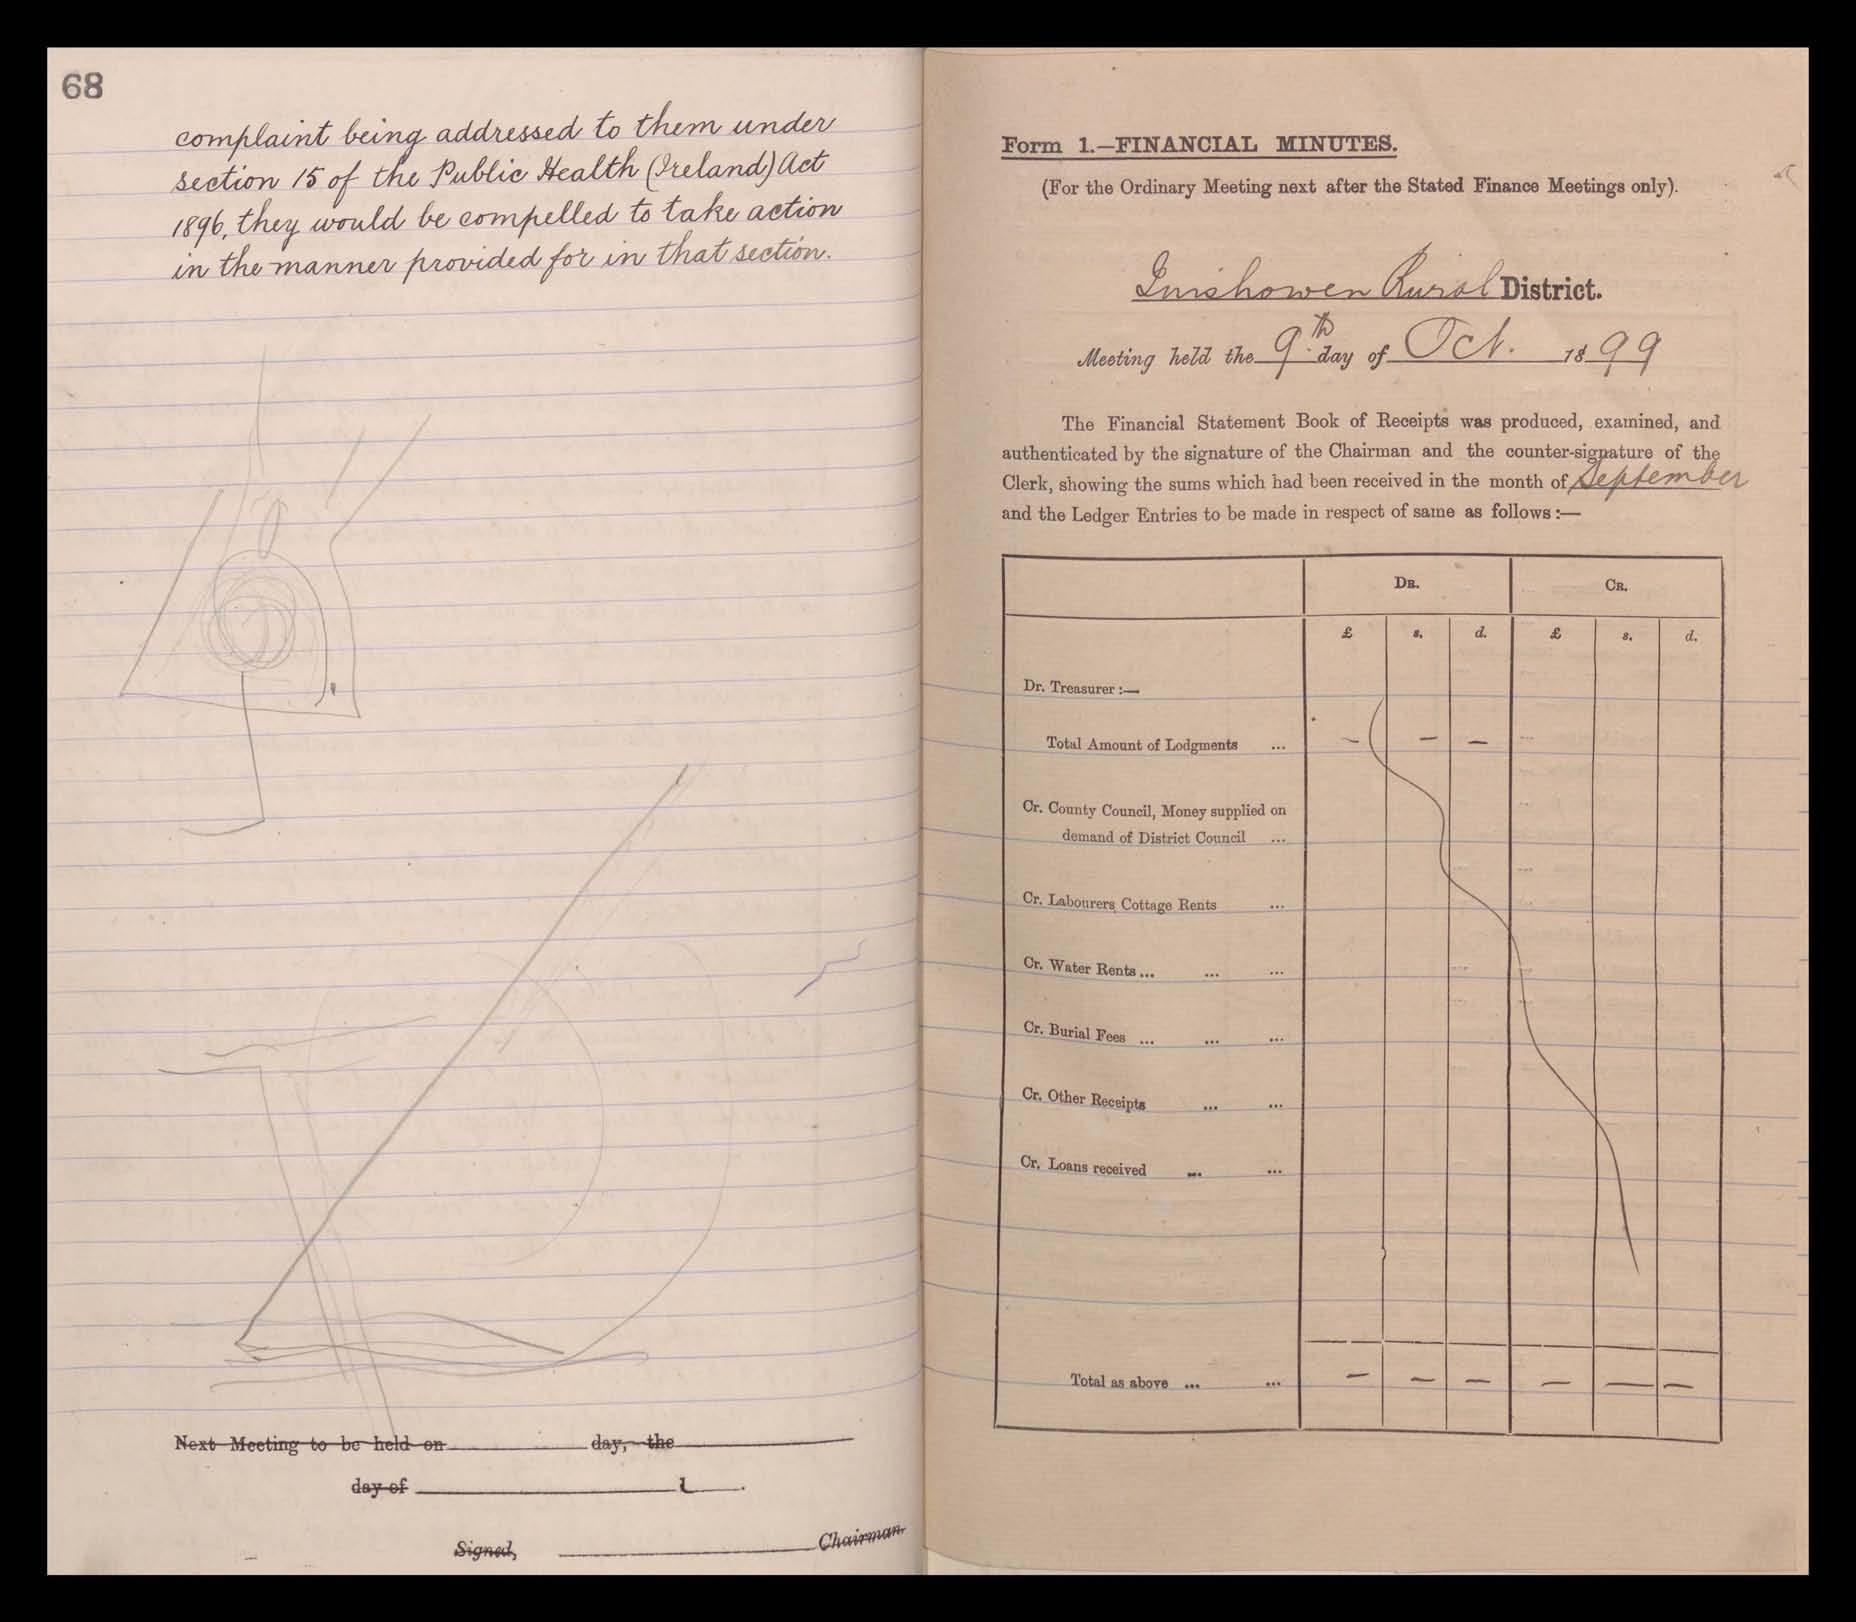 68
complaint being addressed to them under
section 15 of the Public Health (Ireland) Act
1896, they would be compelled to take action
in the manner provided for in that section.
Next Meeting to be held on day, the
day of 1 .
Signed, Chairman.
Form 1.—FINANCIAL MINUTES.
(For the Ordinary Meeting next after the Stated Finance Meetings only).
Inishowen Rural District.
Meeting held the 9th day of Oct. 1899
The Financial Statement Book of Receipts was produced, examined, and
authenticated by the signature of the Chairman and the counter-signature of the
Clerk, showing the sums which had been received in the month of September
and the Ledger Entries to be made in respect of same as follows :—
DR. CR.
£ s. d. £ s. d.
Dr. Treasurer :—
Total Amount of Lodgments ... — — —
Cr. County Council, Money supplied on
demand of District Council ...
Cr. Labourers Cottage Rents ...
Cr. Water Rents ... ... ...
Cr. Burial Fees ... ... ...
Cr. Other Receipts ... ...
Cr. Loans received ... ...
Total as above ... ... — — — — — —